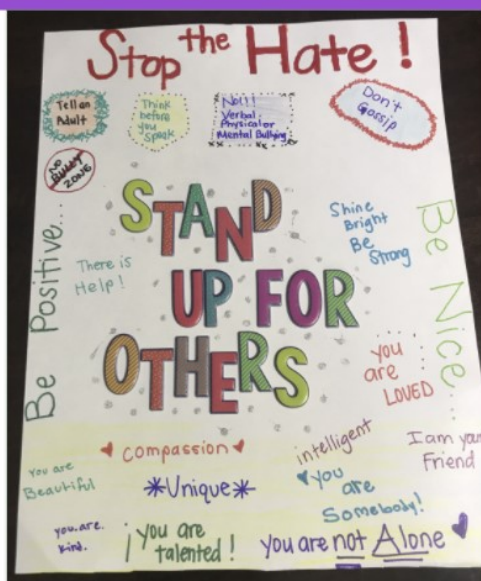 Stop the Hate!
Tell an
Adult
Think
before
you
Speak
No!!!
Verbal
Physical or
Mental Bullying
Don't
Gossip
NO
BULLY
ZONE
Be Positive...
STAND
UP FOR
OTHERS
There is
Help!
Shine
Bright
Be
Strong
Be Nice...
you
are
LOVED
compassion
intelligent
I am your
Friend
you are
Beautiful
*Unique*
you
are
Somebody!
you.are.
kind.
you are
talented!
you are not Alone